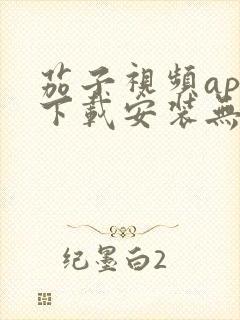 茄子視頻ap
下載安装無
纪墨白2